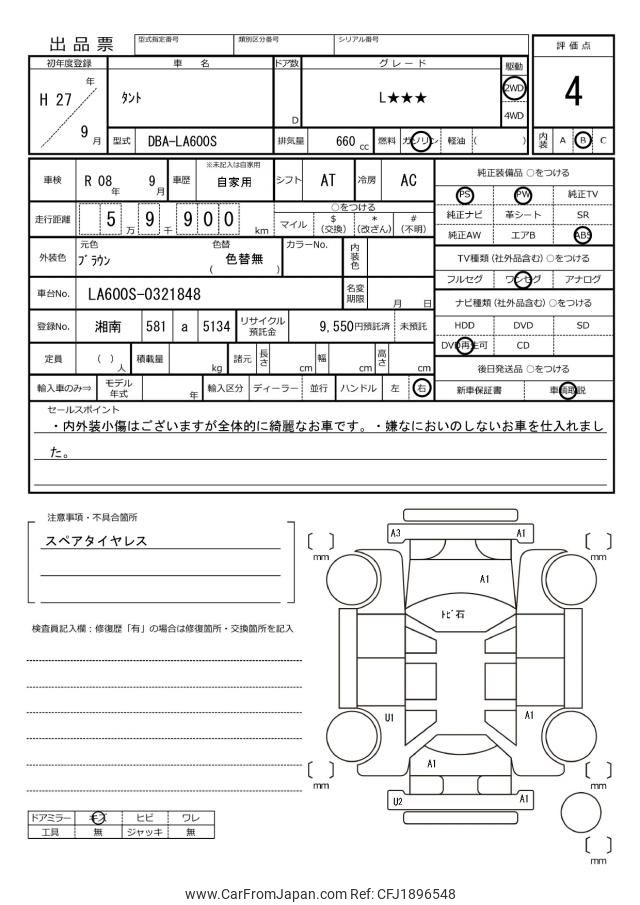 出品票
型式指定番号 類別区分番号 シリアル番号
評価点
4
内装 A B C
初年度登録 車名 ドア数 グレード 駆動
H 27 年 9 月
タント
D
L★★★
2WD
4WD
型式 DBA-LA600S 排気量 660 cc 燃料 ガソリン 軽油 ( )
車検 R 08 年 9 月 車歴 ※未記入は自家用 自家用 シフト AT 冷房 AC
走行距離 5 万 9 千 9 0 0 km
○をつける
マイル $ (交換) * (改ざん) # (不明)
外装色 元色 ブラウン 色替 ( 色替無 ) カラーNo. 内装色
車台No. LA600S-0321848 名変期限 月 日
登録No. 湘南 581 a 5134 リサイクル預託金 9,550円預託済 未預託
定員 ( ) 人 積載量 kg 諸元 長さ cm 幅 cm 高さ cm
輸入車のみ⇒ モデル年式 年 輸入区分 ディーラー 並行 ハンドル 左 右
純正装備品 ○をつける
PS PW 純正TV
純正ナビ 革シート SR
純正AW エアB ABS
TV種類 (社外品含む) ○をつける
フルセグ ワンセグ アナログ
ナビ種類 (社外品含む) ○をつける
HDD DVD SD
DVD再生可 CD
後日発送品 ○をつける
新車保証書 車輌取説
セールスポイント
・内外装小傷はございますが全体的に綺麗なお車です。・嫌なにおいのしないお車を仕入れまし
た。
注意事項・不具合箇所
スペアタイヤレス
検査員記入欄：修復歴「有」の場合は修復箇所・交換箇所を記入
ドアミラー キズ ヒビ ワレ
工具 無 ジャッキ 無
A3 A1
A1
トビ石
U1 A1
A1
U2 A1
[ ] mm
[ ] mm
[ ] mm
[ ] mm
[ ] mm
www.CarFromJapan.com Ref: CFJ1896548